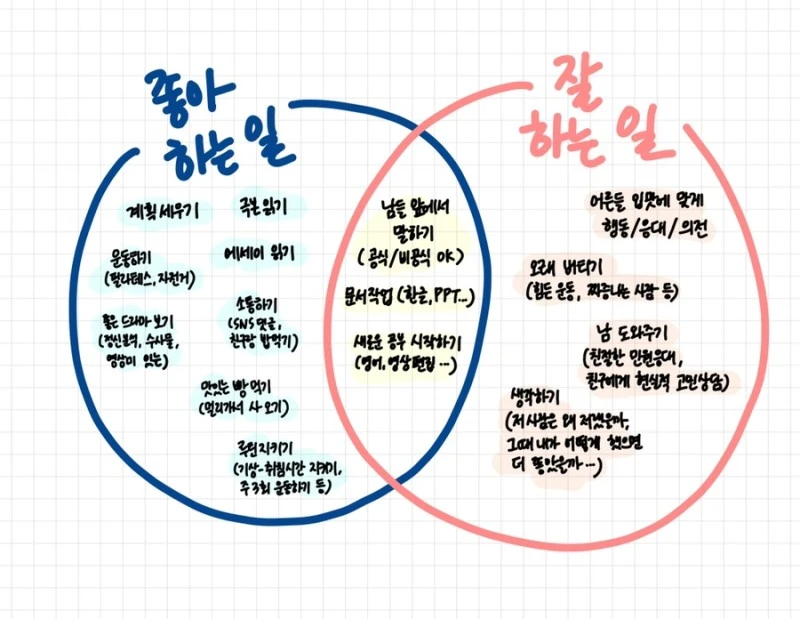 좋아
하는 일
잘
하는 일
계획 세우기
극본 읽기
운동하기
(필라테스, 자전거)
에세이 읽기
좋은 드라마 보기
(정신분석, 수사물,
영상미 있는)
소통하기
(SNS 댓글,
친구랑 밥먹기)
맛있는 빵 먹기
(멀리가서 사 오기)
루틴 지키기
(기상-취침시간 지키기,
주 3회 운동하기 등)
남들 앞에서
말하기
(공식/비공식 OK)
문서작업 (한글, PPT...)
새로운 공부 시작하기
(영어, 영상편집 ...)
어른들 입맛에 맞게
행동/응대/의전
오래 버티기
(힘든 운동, 짜증나는 사람 등)
남 도와주기
(친절한 민원응대,
친구에게 현실적 고민상담)
생각하기
(저 사람은 왜 저랬을까,
그때 내가 어떻게 했으면
더 좋았을까...)